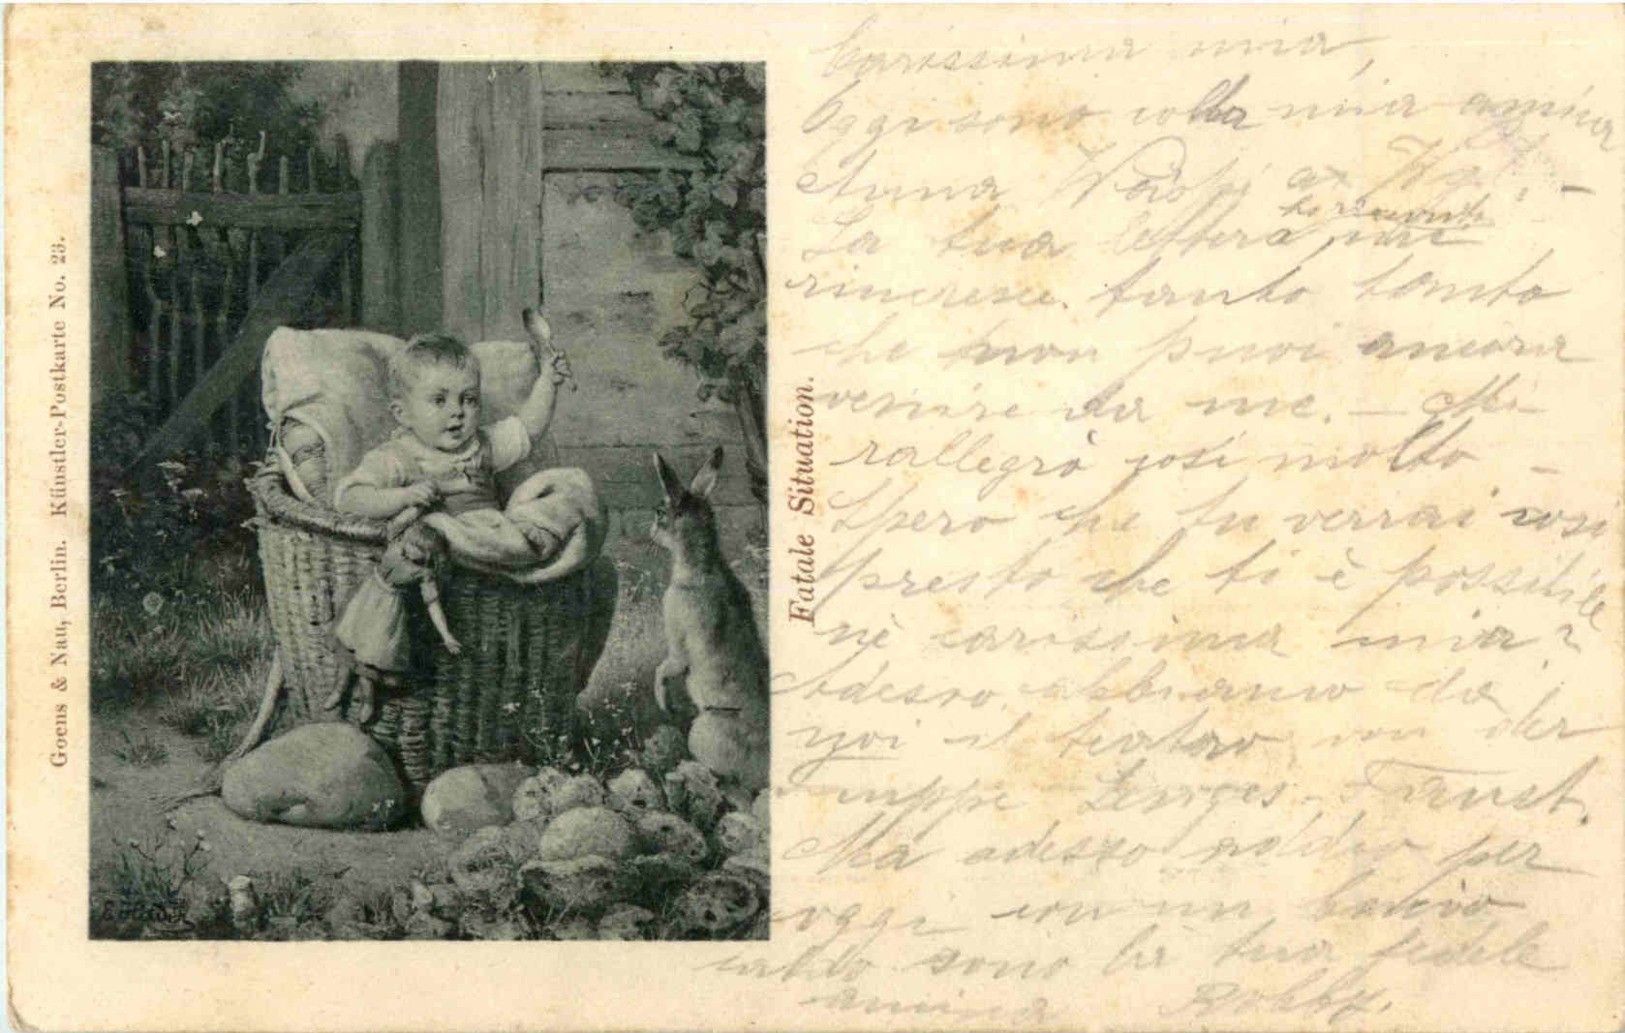 Goens & Nau, Berlin. Künstler-Postkarte No. 23.
Fatale Situation.
Carissima mia,
Oggi sono colla mia amica
Anna
La tua lettera, mi
rincresce tanto tanto
che non puoi ancora
venire da me. — Mi
rallegrò così molto —
Spero che tu verrai così
presto che ti è possibile
nè carissima mia?
Adesso abbiamo da
noi il teatro von der
Faust.
Ma adesso addio per
oggi con un bacio
caldo sono la tua fedele
amica